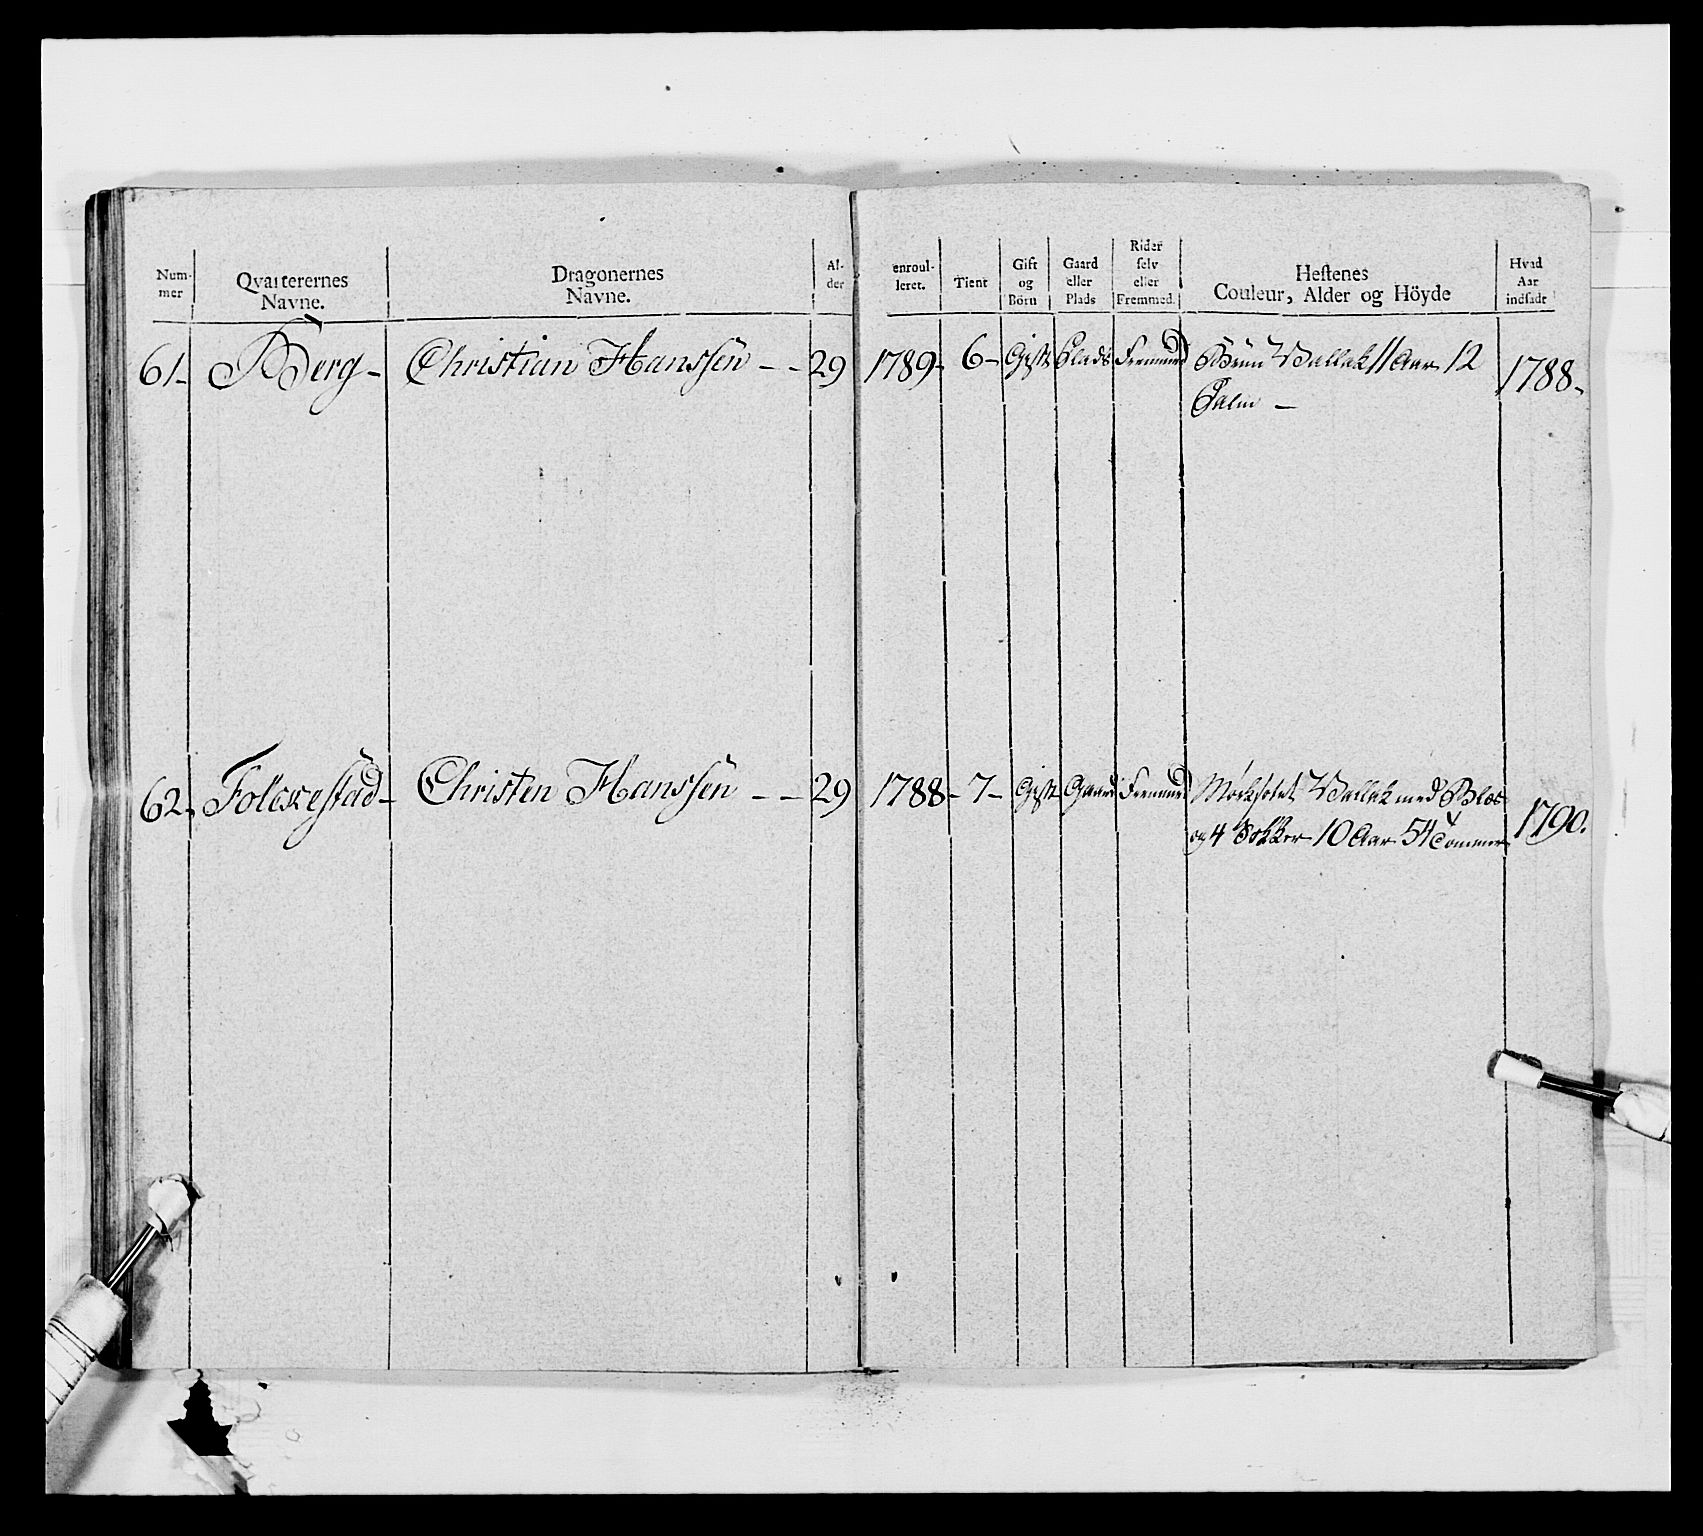 Num-
mer
Qvarterernes
Navne.
Dragonernes
Navne.
Al-
der
enroul-
leret.
Tient
Gift
og
Börn
Gaard
eller
Plads
Rider
selv
eller
Fremmed.
Hestenes
Couleur, Alder og Höyde
Hvad
Aar
indsadt
61- Berg- Christian Hanssen - - 29 1789- 6- Gift Plads Fremmed Brun Vallak 11 Aar 12 1788-
Palm -
62- Folckestad- Christen Hanssen - - 29 1788- 7- Gift Gaard Fremmed Vallak med Blis 1790.
og 4 Sokker 10 Aar 54 Tommer